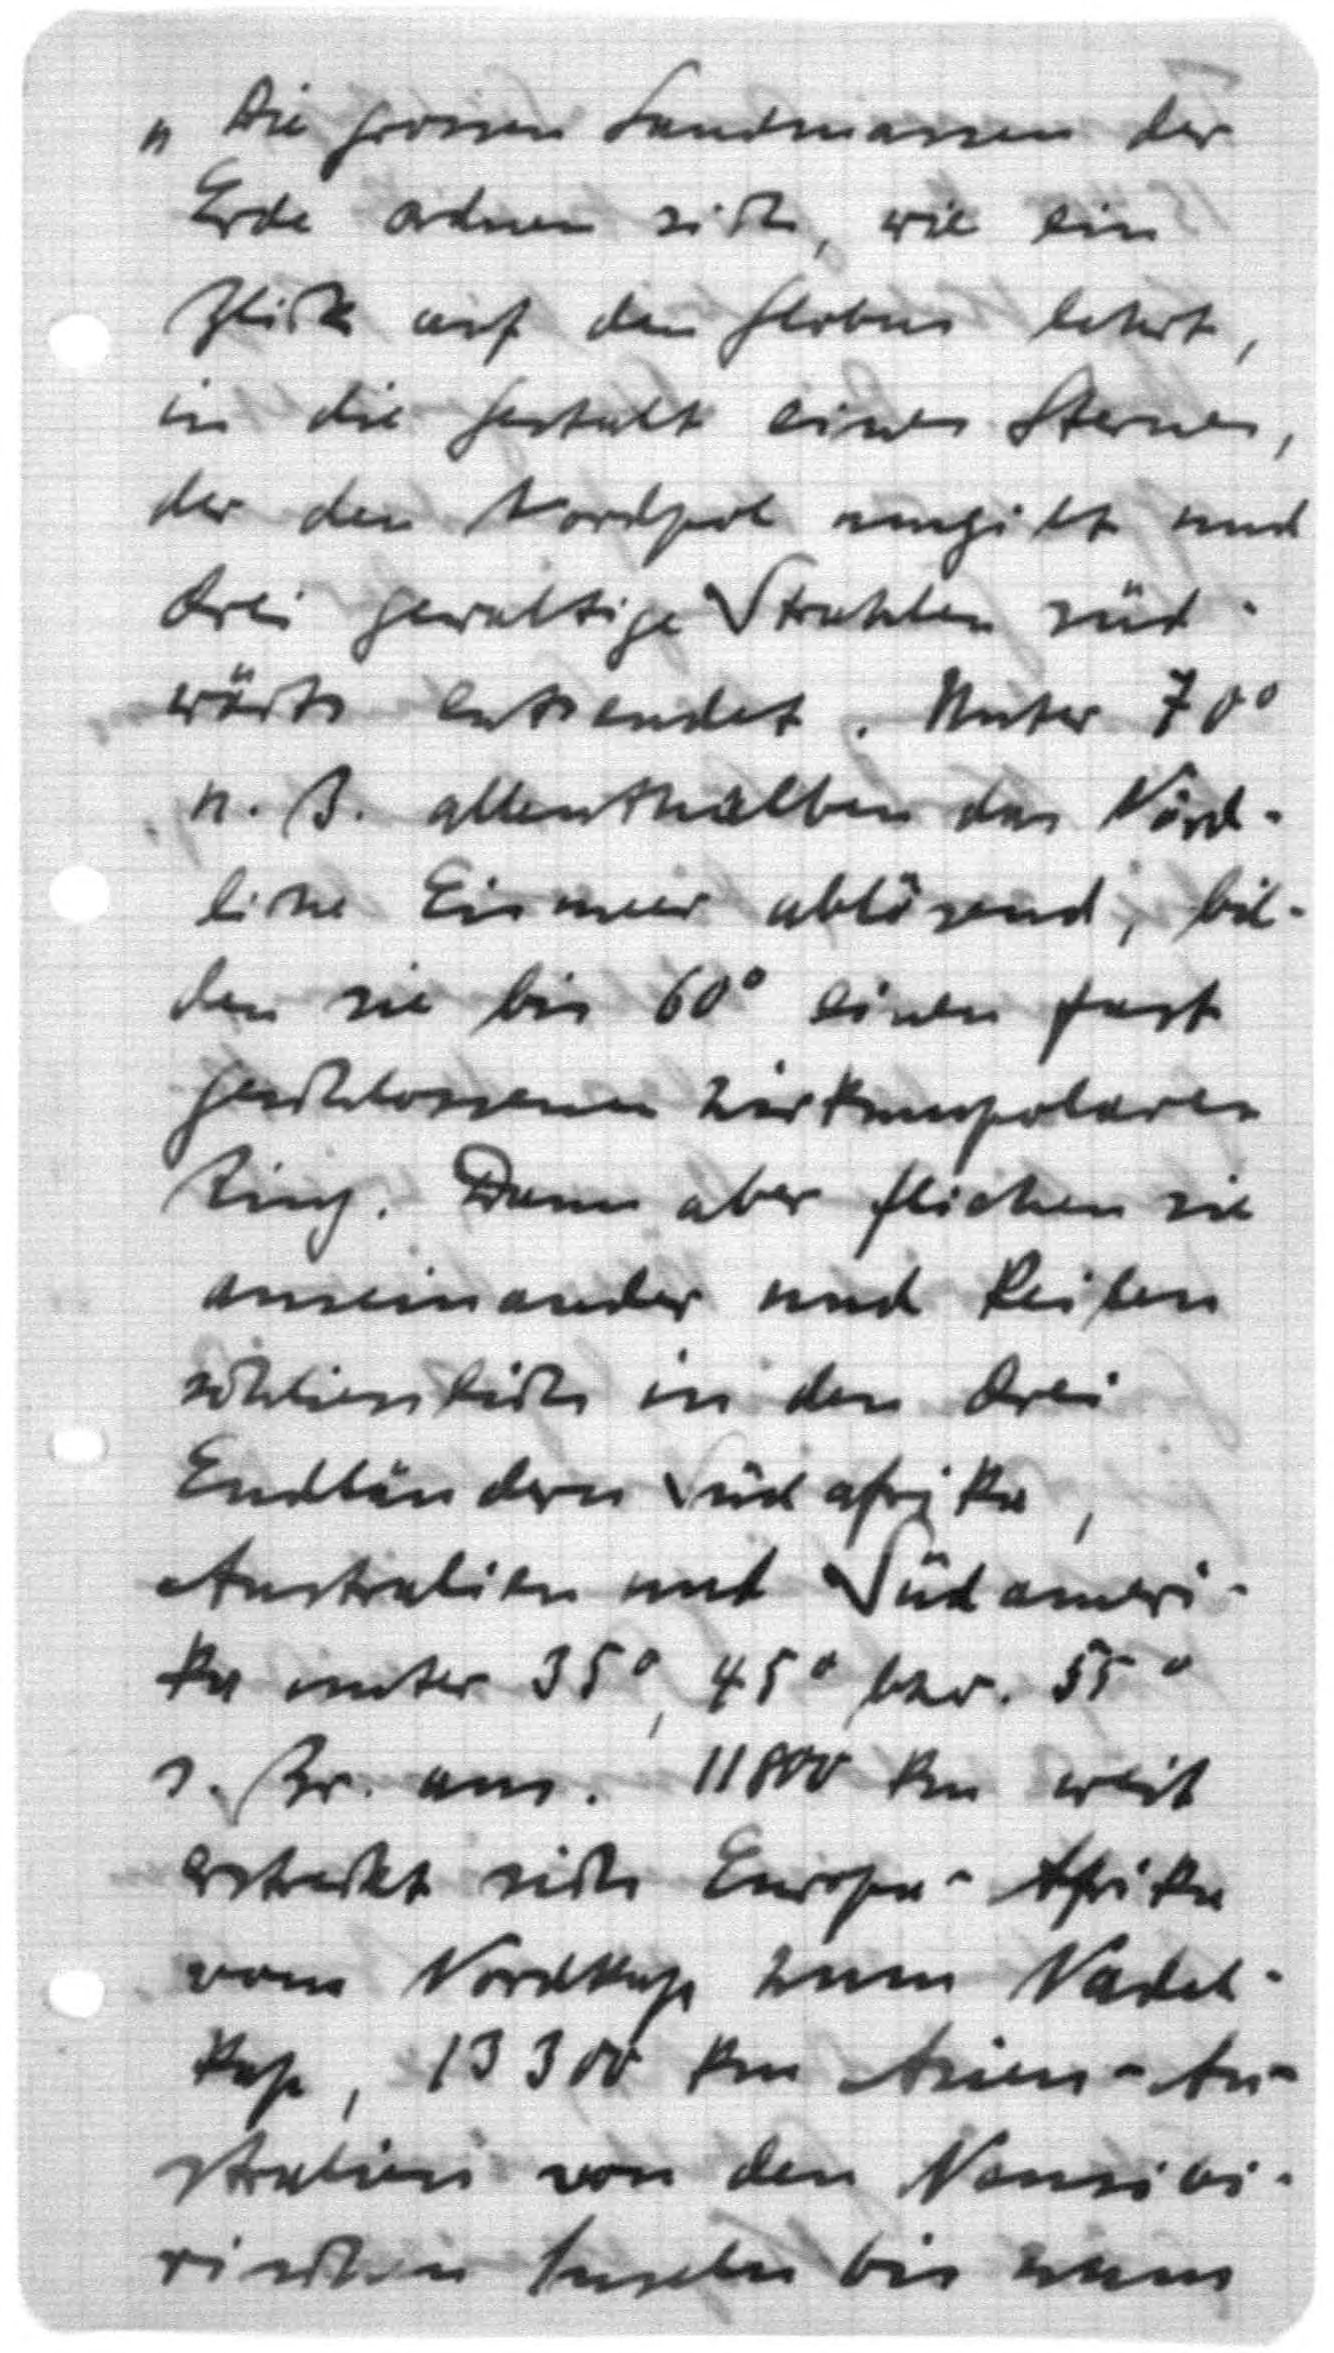 „ Die grossen Landmassen der
Erde ordnen sich, wie ein
Blick auf den Globus lehrt,
in die Gestalt eines Sternes,
der den Nordpol umgibt und
drei gewaltige Strahlen süd-
wärts entsendet. Unter 70°
n. B. allenthalben das Nörd-
liche Eismeer ablösend, bil-
den sie bis 60° einen fast
geschlossenen zirkumpolaren
Ring. Dann aber fliehen sie
auseinander und keilen
schliesslich in den drei
Endländern Südafrika,
Australien und Südameri-
ka unter 35°, 45° bzw. 55°
s. Br. aus. 11800 km weit
erstreckt sich Europa-Afrika
vom Nordkap zum Nadel-
kap, 13300 km Asien-Au-
stralien von den Neusibi-
rischen Inseln bis zum